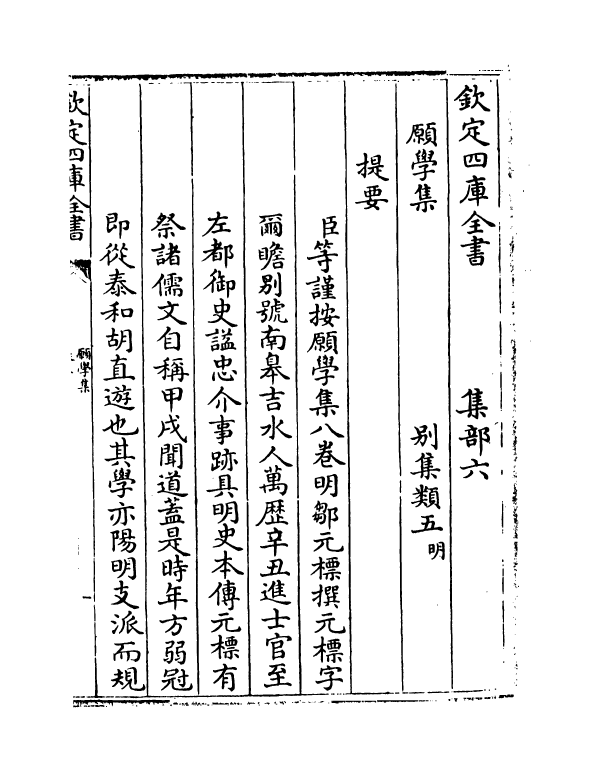 欽定四庫全書　集部六
願學集　別集類五明
提要
臣等謹按願學集八卷明鄒元標撰元標字
爾瞻別號南臯吉水人萬歷辛丑進士官至
左都御史諡忠介事跡具明史本傳元標有
祭諸儒文自稱甲戌聞道蓋是時年方弱冠
即從泰和胡直遊也其學亦陽明支派而規
欽定四庫全書
願學集